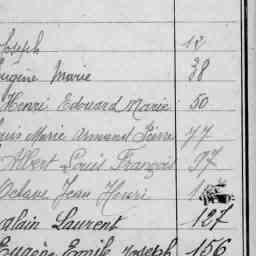 Joseph 12
Eugène Marie 38
Henri Edouard Marie 50
Louis Marie Armand Pierre 77
Albert Louis François 97
Octave Jean Henri
Alain Laurent 127
Eugène Emile Joseph 156